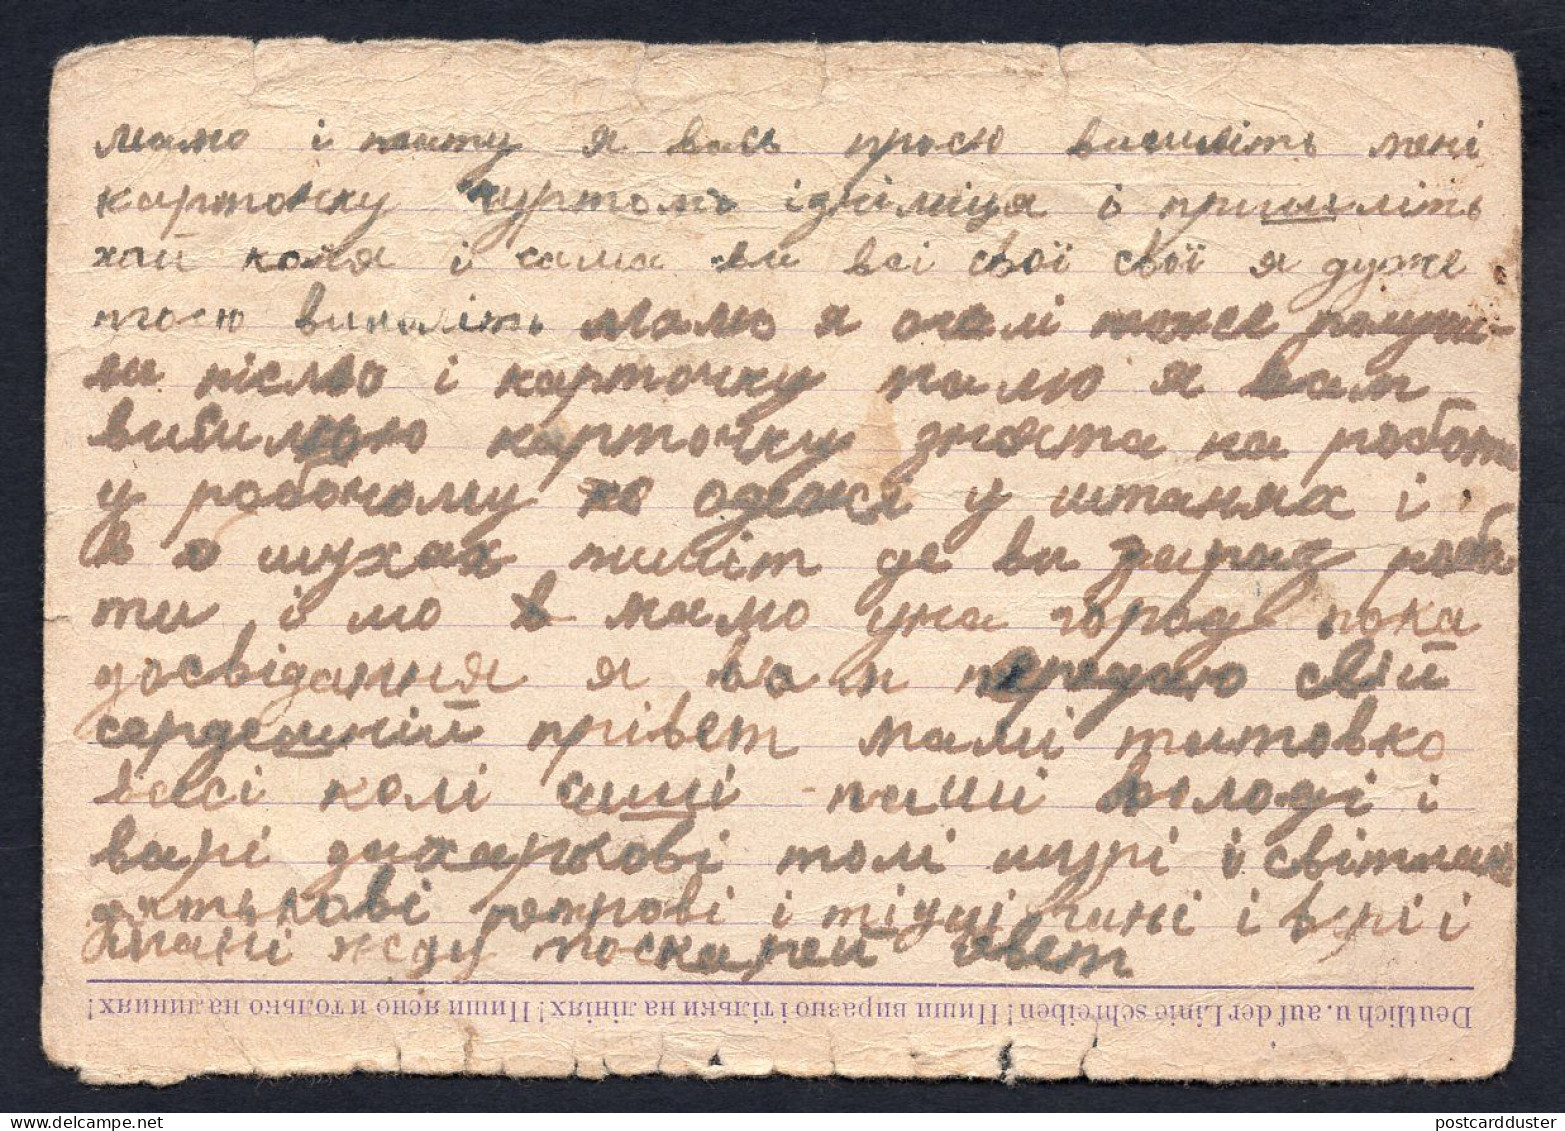 мамо і тату я вась просю висиліть мені
карточку гуртомь і пришліть
хай коля і сама ви всі свої свої я дуже
просю виполіть мамо я очелі тоже получи-
ла пісмо і карточку мамо я вам
висилаю карточку знята на роботі
у робочому не одежі у штанях і
в пишіт де ви зараз робо
ти і шо в мамо у на город пока
досвідання я вам передаю свій
сердешній прівет мамі титовко
васі колі сиші паши володі і
варі дихаркові толі шурі і світлані
дятькові петрові і тідці гані і вірі і
мані жду поскарей овет
Deutlich u. auf der Linie schreiben! Пиши виразно і тільки на лініях! Пиши ясно и только на линиях!
postcardduster